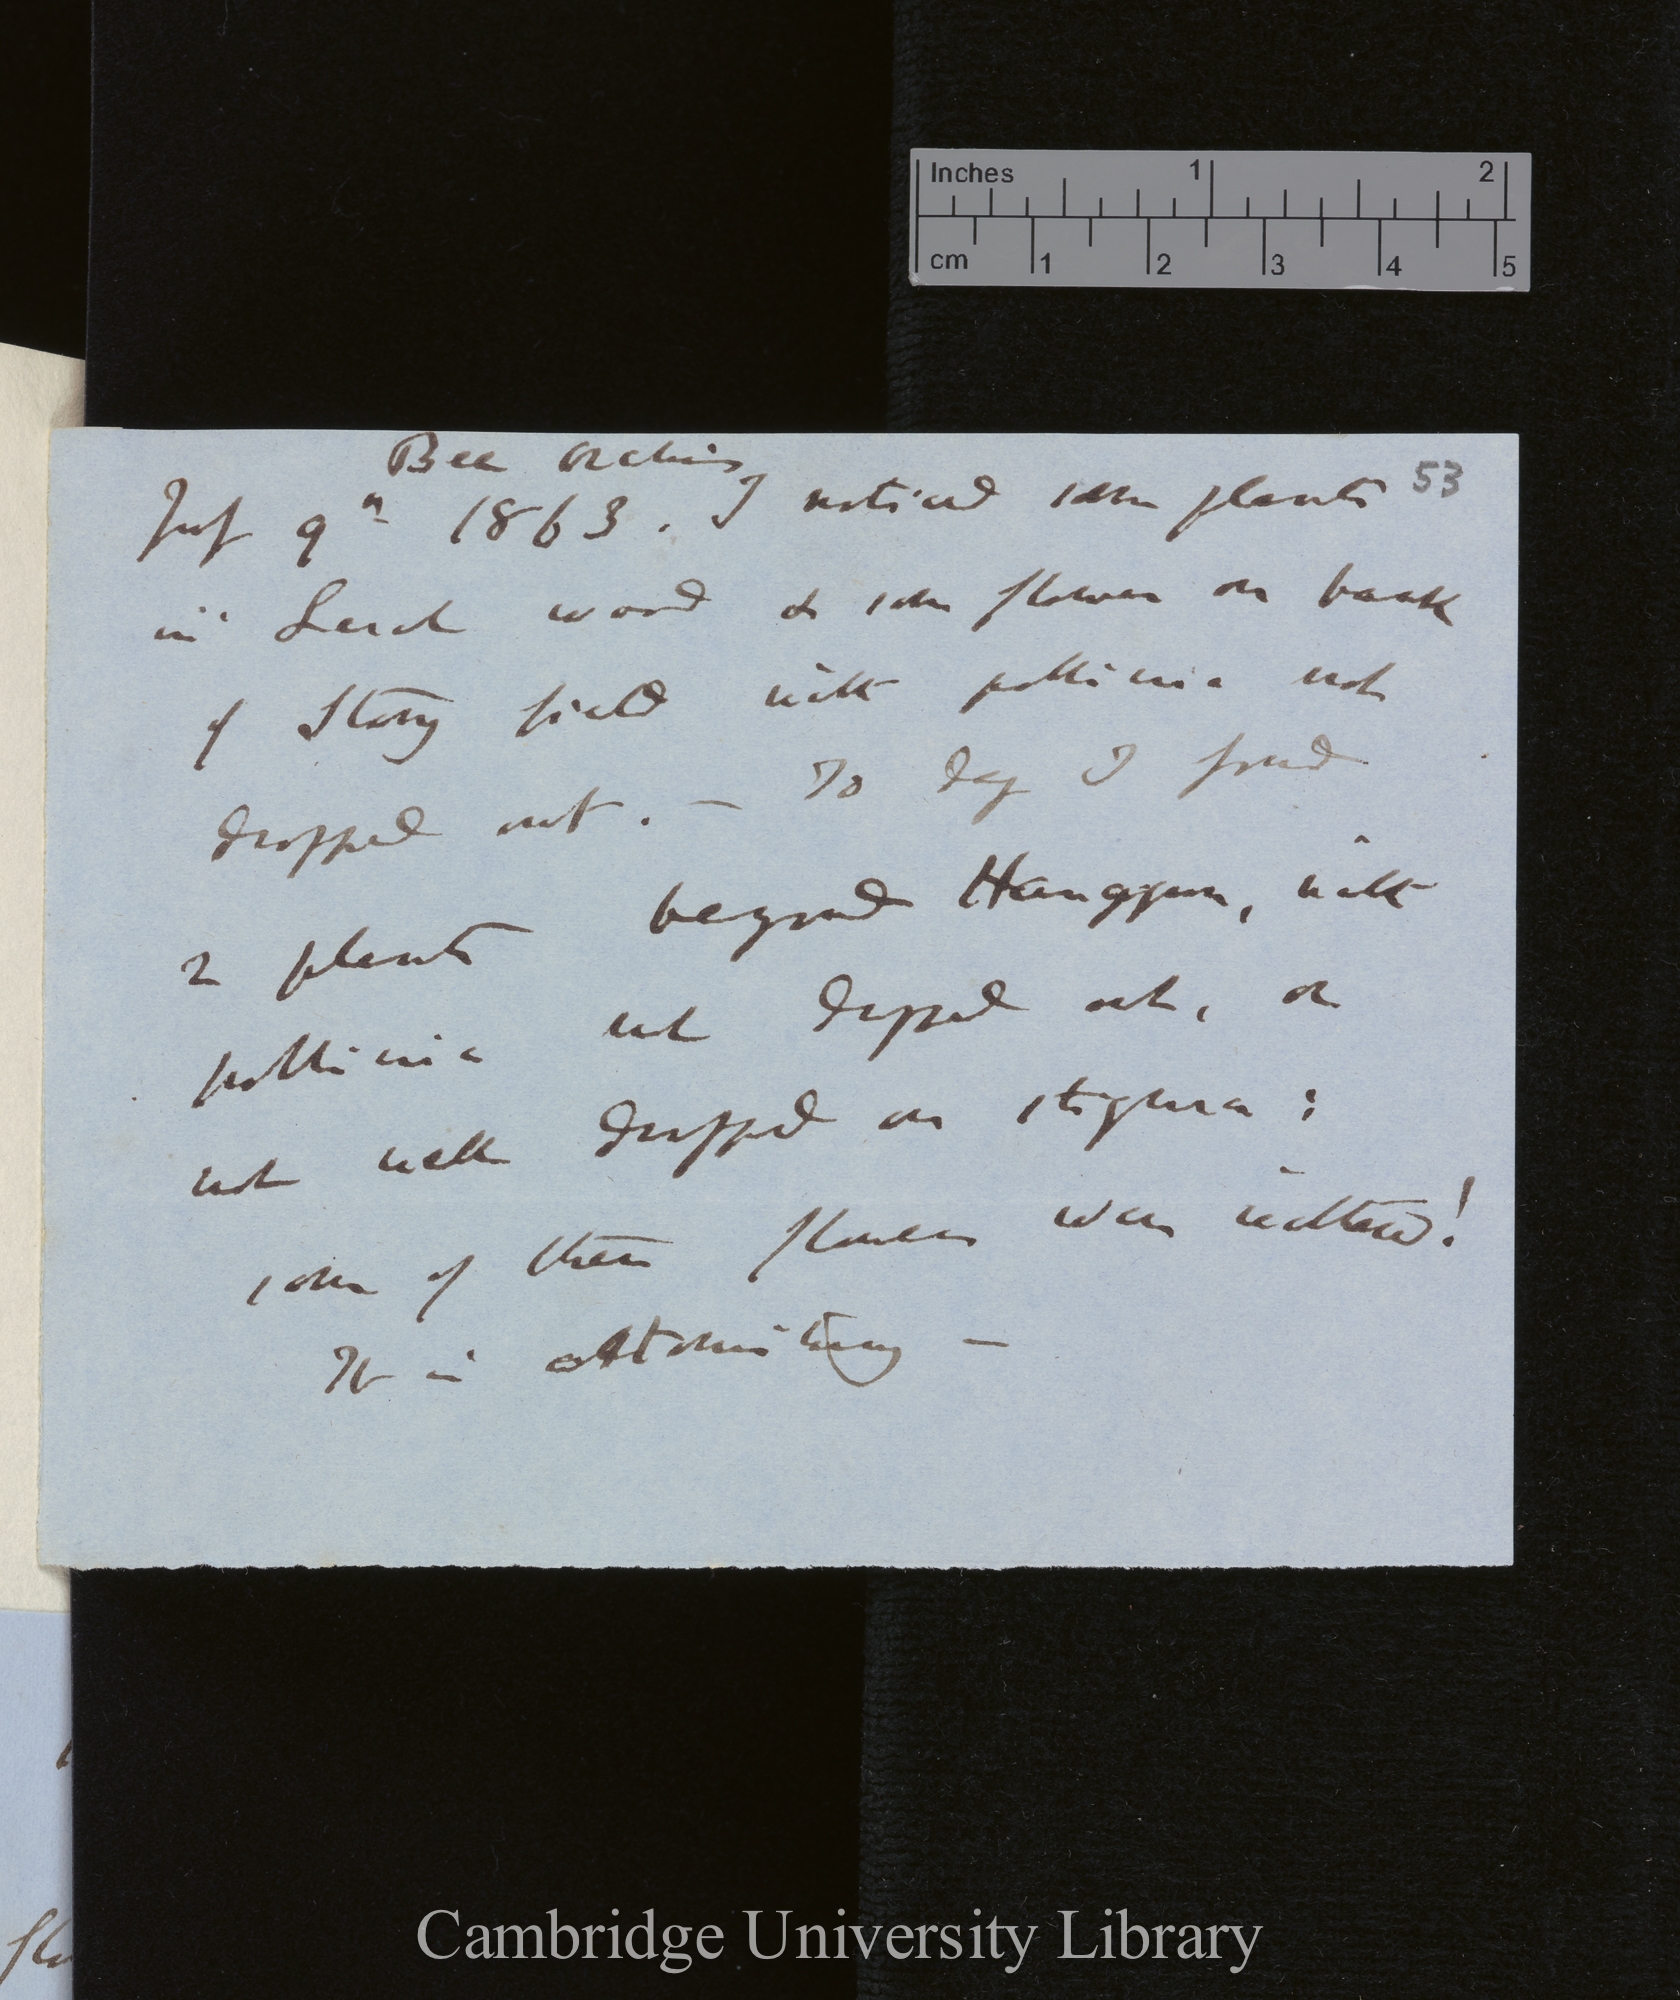 Inches 1 2
cm 1 2 3 4 5
53
Bee Orchis
July 9th 1863. I noticed some plants
in Larch wood & some flowers on bank
of Stony field with pollinia not
dropped out. — To day I found
2 plants beyond Hangrove, with
pollinia not dropped out, or
not well dropped on stigma;
some of these flowers were withered!
It is astonishing —
Cambridge University Library